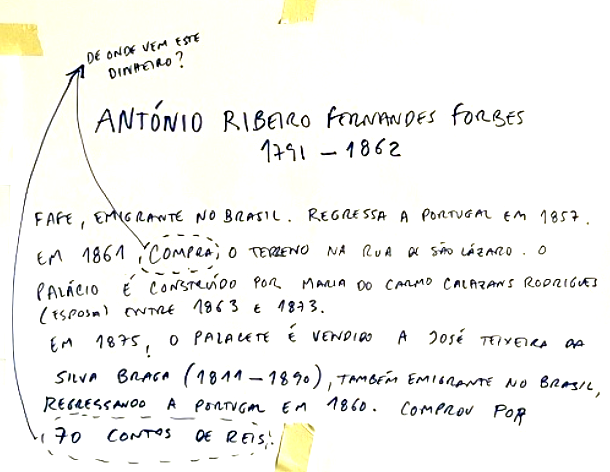 DE ONDE VEM ESTE
DINHEIRO?
ANTÓNIO RIBEIRO FERNANDES FORBES
1791 – 1862
FAFE, EMIGRANTE NO BRASIL. REGRESSA A PORTUGAL EM 1857.
EM 1861, COMPRA, O TERRENO NA RUA DE SÃO LÁZARO. O
PALÁCIO É CONSTRUÍDO POR MARIA DO CARMO CALAZANS RODRIGUES
(ESPOSA) ENTRE 1863 E 1873.
EM 1875, O PALACETE É VENDIDO A JOSÉ TEIXEIRA DA
SILVA BRAGA (1811–1890), TAMBÉM EMIGRANTE NO BRASIL,
REGRESSANDO A PORTUGAL EM 1860. COMPROU POR
70 CONTOS DE REIS.